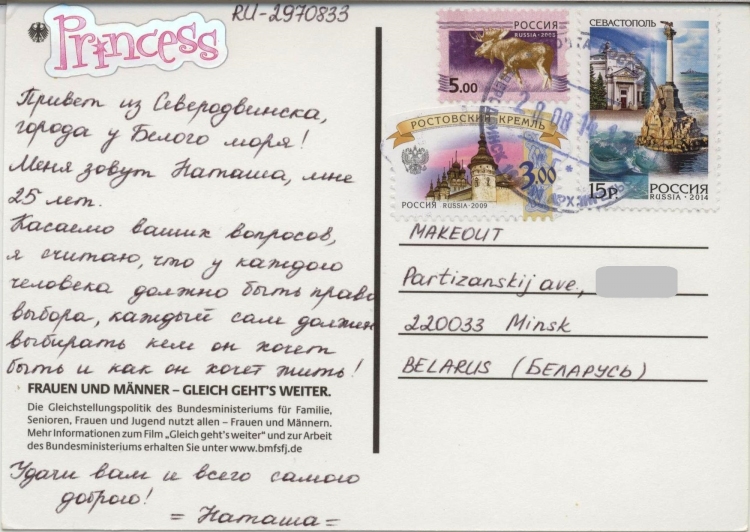 RU-2970833
Princess
Привет из Северодвинска,
города у Белого моря!
Меня зовут Наташа, мне
25 лет.
Касаемо ваших вопросов,
я считаю, что у каждого
человека должно быть право
выбора, каждый сам должен
выбирать кем он хочет
быть и как он хочет жить!
FRAUEN UND MÄNNER – GLEICH GEHT'S WEITER.
Die Gleichstellungspolitik des Bundesministeriums für Familie,
Senioren, Frauen und Jugend nutzt allen – Frauen und Männern.
Mehr Informationen zum Film „Gleich geht's weiter" und zur Arbeit
des Bundesministeriums erhalten Sie unter www.bmfsfj.de
Удачи вам и всего самого
доброго!
= Наташа =
РОССИЯ
RUSSIA-2008
5.00
СЕВАСТОПОЛЬ
15р РОССИЯ
RUSSIA - 2014
РОСТОВСКИЙ КРЕМЛЬ
3.00
РОССИЯ RUSSIA-2009
MAKEOUT
Partizanskij ave.,
220033 Minsk
BELARUS (БЕЛАРУСЬ)